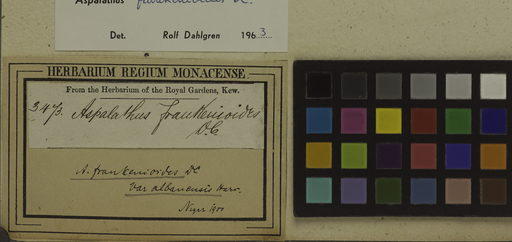 Aspalathus frankenioides DC.
Det. Rolf Dahlgren 1963
HERBARIUM REGIUM MONACENSE.
From the Herbarium of the Royal Gardens, Kew.
3473. Aspalathus frankenioides
D.C.
A. frankenioides DC
var albanensis Harv.
1900